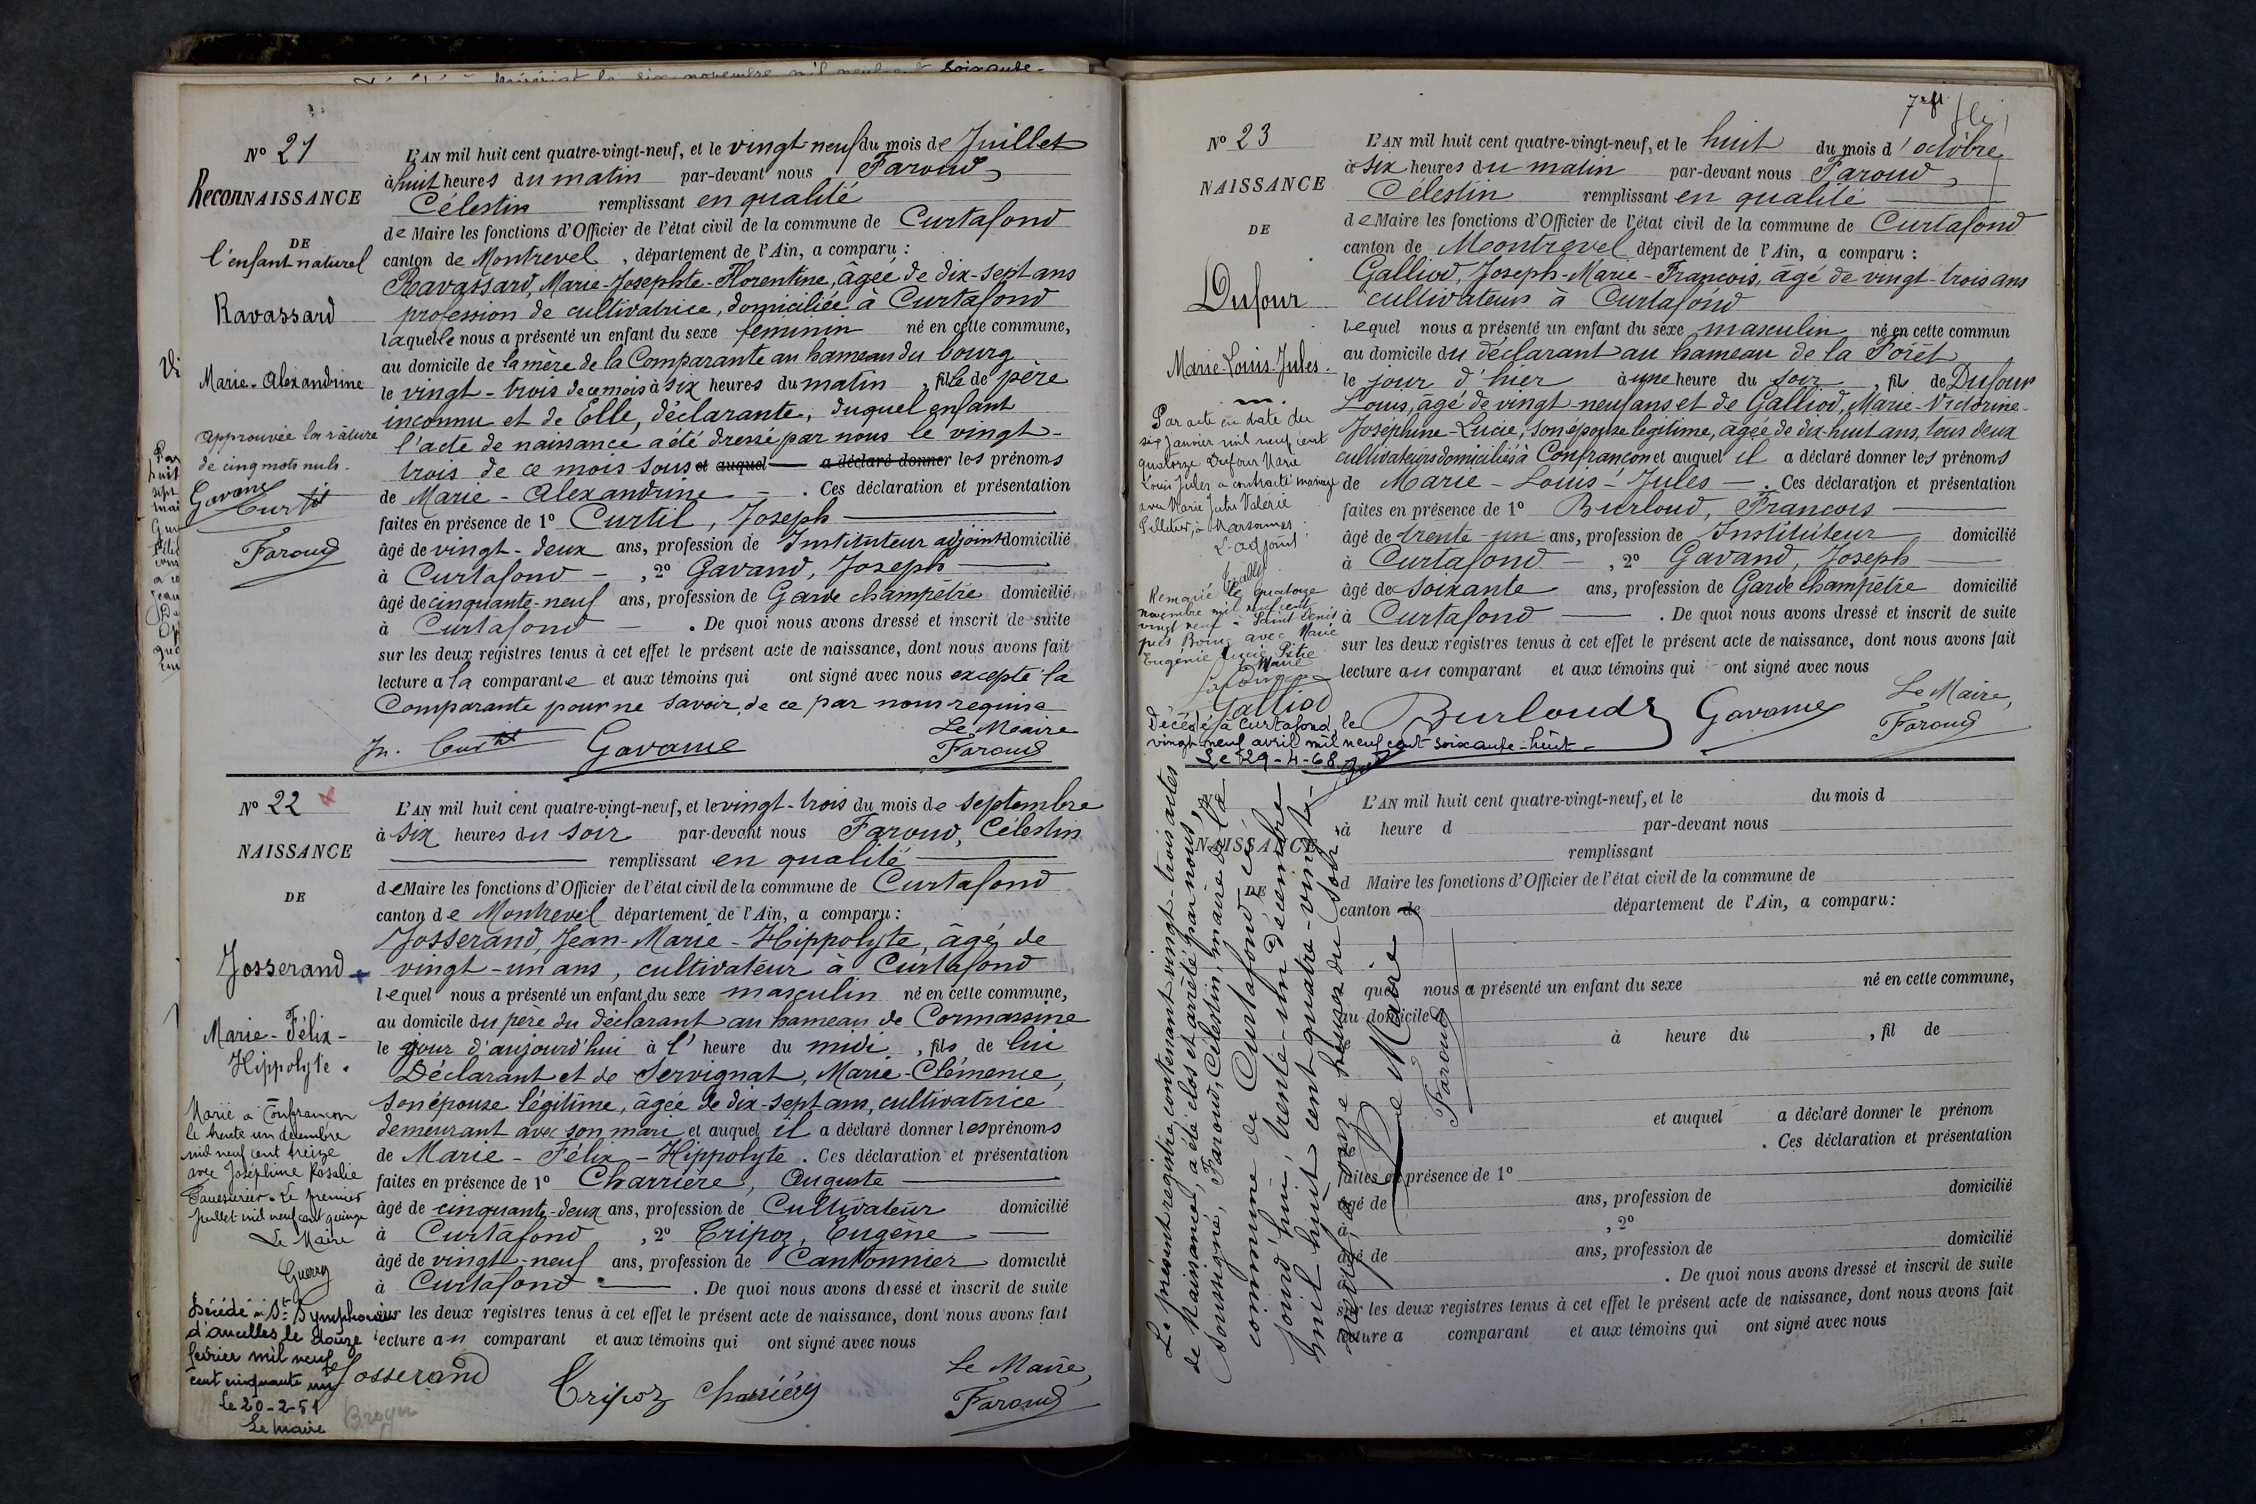 soixante-
Nº 21
ReconNAISSANCE
DE
l'enfant naturel
Ravassard
Marie-Alexandrine
Approuvée la râture
de cinq mots nuls.
Gavand
Curtil
Faroud
L'AN mil huit cent quatre-vingt-neuf, et le vingt-neuf du mois de Juillet
à huit heures du matin par-devant nous Faroud,
Célestin remplissant en qualité
de Maire les fonctions d'Officier de l'état civil de la commune de Curtafond
canton de Montrevel, département de l'Ain, a comparu :
Ravassard, Marie-Josephte-Florentine, âgée de dix-sept ans
profession de cultivatrice, domiciliée à Curtafond
laquelle nous a présenté un enfant du sexe féminin né en cette commune,
au domicile de la mère de la Comparante au hameau du bourg
le vingt-trois de ce mois à six heures du matin, fille de père
inconnu et de Elle, déclarante, duquel enfant
l'acte de naissance a été dressé par nous le vingt-
trois de ce mois sous et auquel a déclaré donner les prénoms
de Marie-Alexandrine — . Ces déclaration et présentation
faites en présence de 1º Curtil, Joseph
âgé de vingt-deux ans, profession de Instituteur adjoint domicilié
à Curtafond — , 2º Gavand, Joseph
âgé de cinquante-neuf ans, profession de Garde champêtre domicilié
à Curtafond — . De quoi nous avons dressé et inscrit de suite
sur les deux registres tenus à cet effet le présent acte de naissance, dont nous avons fait
lecture a la comparante et aux témoins qui ont signé avec nous excepté la
Comparante pour ne savoir, de ce par nous requise
Le Maire
Jh. Curtil Gavand Faroud
Nº 22
NAISSANCE
DE
Josserand
Marie-Félix-
Hippolyte.
Marié à Confrançon
le trente un décembre
mil neuf cent treize
avec Joséphine Rosalie
Le premier
juillet mil neuf cent quinze
Le Maire
Guerry
Décédé à St Symphorien
d'ancelles le douze
février mil neuf
cent cinquante un
Le 20-2-51
Le maire
L'AN mil huit cent quatre-vingt-neuf, et le vingt-trois du mois de septembre
à six heures du soir par-devant nous Faroud, Célestin
remplissant en qualité
de Maire les fonctions d'Officier de l'état civil de la commune de Curtafond
canton de Montrevel département de l'Ain, a comparu :
Josserand, Jean-Marie-Hippolyte, âgé de
vingt-un ans, cultivateur à Curtafond
lequel nous a présenté un enfant du sexe masculin né en cette commune,
au domicile du père du déclarant au hameau de Cormassine
le jour d'aujourd'hui à l'heure du midi, fils de lui
Déclarant et de Servignat, Marie-Clémence,
son épouse légitime, âgée de dix-sept ans, cultivatrice
demeurant avec son mari et auquel il a déclaré donner les prénoms
de Marie-Félix-Hippolyte. Ces déclaration et présentation
faites en présence de 1º Charrière, Auguste
âgé de cinquante-deux ans, profession de Cultivateur domicilié
à Curtafond , 2º Tripoz, Eugène
âgé de vingt-neuf ans, profession de Cantonnier domicilié
à Curtafond . De quoi nous avons dressé et inscrit de suite
sur les deux registres tenus à cet effet le présent acte de naissance, dont nous avons fait
lecture au comparant et aux témoins qui ont signé avec nous
Le Maire,
Josserand Tripoz Charrière Faroud
Nº 23
NAISSANCE
DE
Dufour
Marie-Louis-Jules.
Par acte en date du
six Janvier mil neuf cent
quatorze Dufour Marie
Louis Jules a contracté mariage
avec Marie Julie Valérie
Pelletier, à Marsonnas
L'adjoint
Remarié le quatorze
novembre mil neuf cent
vingt neuf à Saint Denis
près Bourg avec Marie
Eugénie Lucie Pitre
Galliod
Décédé à Curtafond, le
vingt neuf avril mil neuf cent soixante-huit.
Le 29-4-68
L'AN mil huit cent quatre-vingt-neuf, et le huit du mois d'octobre
à six heures du matin par-devant nous Faroud,
Célestin remplissant en qualité
de Maire les fonctions d'Officier de l'état civil de la commune de Curtafond
canton de Montrevel département de l'Ain, a comparu :
Galliod, Joseph-Marie-François, âgé de vingt-trois ans
cultivateur à Curtafond
lequel nous a présenté un enfant du sexe masculin né en cette commun
au domicile du déclarant au hameau de la Forêt
le jour d'hier à une heure du soir, fils de Dufour
Louis, âgé de vingt neuf ans et de Galliod, Marie-Victorine-
Joséphine-Lucie, son épouse légitime, âgée de dix-huit ans, tous deux
cultivateurs domiciliés à Confrançon et auquel il a déclaré donner les prénoms
de Marie-Louis-Jules — . Ces déclaration et présentation
faites en présence de 1º Burloud, François
âgé de trente-un ans, profession de Instituteur domicilié
à Curtafond — , 2º Gavand, Joseph
âgé de soixante ans, profession de Garde champêtre domicilié
à Curtafond . De quoi nous avons dressé et inscrit de suite
sur les deux registres tenus à cet effet le présent acte de naissance, dont nous avons fait
lecture au comparant et aux témoins qui ont signé avec nous
Le Maire,
Burloud Gavand Faroud
NAISSANCE
DE
L'AN mil huit cent quatre-vingt-neuf, et le du mois d
à heure d par-devant nous
remplissant
d Maire les fonctions d'Officier de l'état civil de la commune de
canton de département de l'Ain, a comparu :
quel nous a présenté un enfant du sexe né en cette commune,
au domicile
à heure du , fil de
et auquel a déclaré donner le prénom
. Ces déclaration et présentation
faites en présence de 1º
âgé de ans, profession de domicilié
à , 2º
âgé de ans, profession de domicilié
. De quoi nous avons dressé et inscrit de suite
sur les deux registres tenus à cet effet le présent acte de naissance, dont nous avons fait
lecture a comparant et aux témoins qui ont signé avec nous
Le présent registre, contenant vingt-trois actes
de Naissances, a été clos et arrêté par nous,
soussigné, Faroud, Célestin, maire de la
commune de Curtafond, ce
jourd'hui, trente-un décembre
mil huit cent quatre-vingt-
neuf, à onze heures du soir.
Le Maire
Faroud